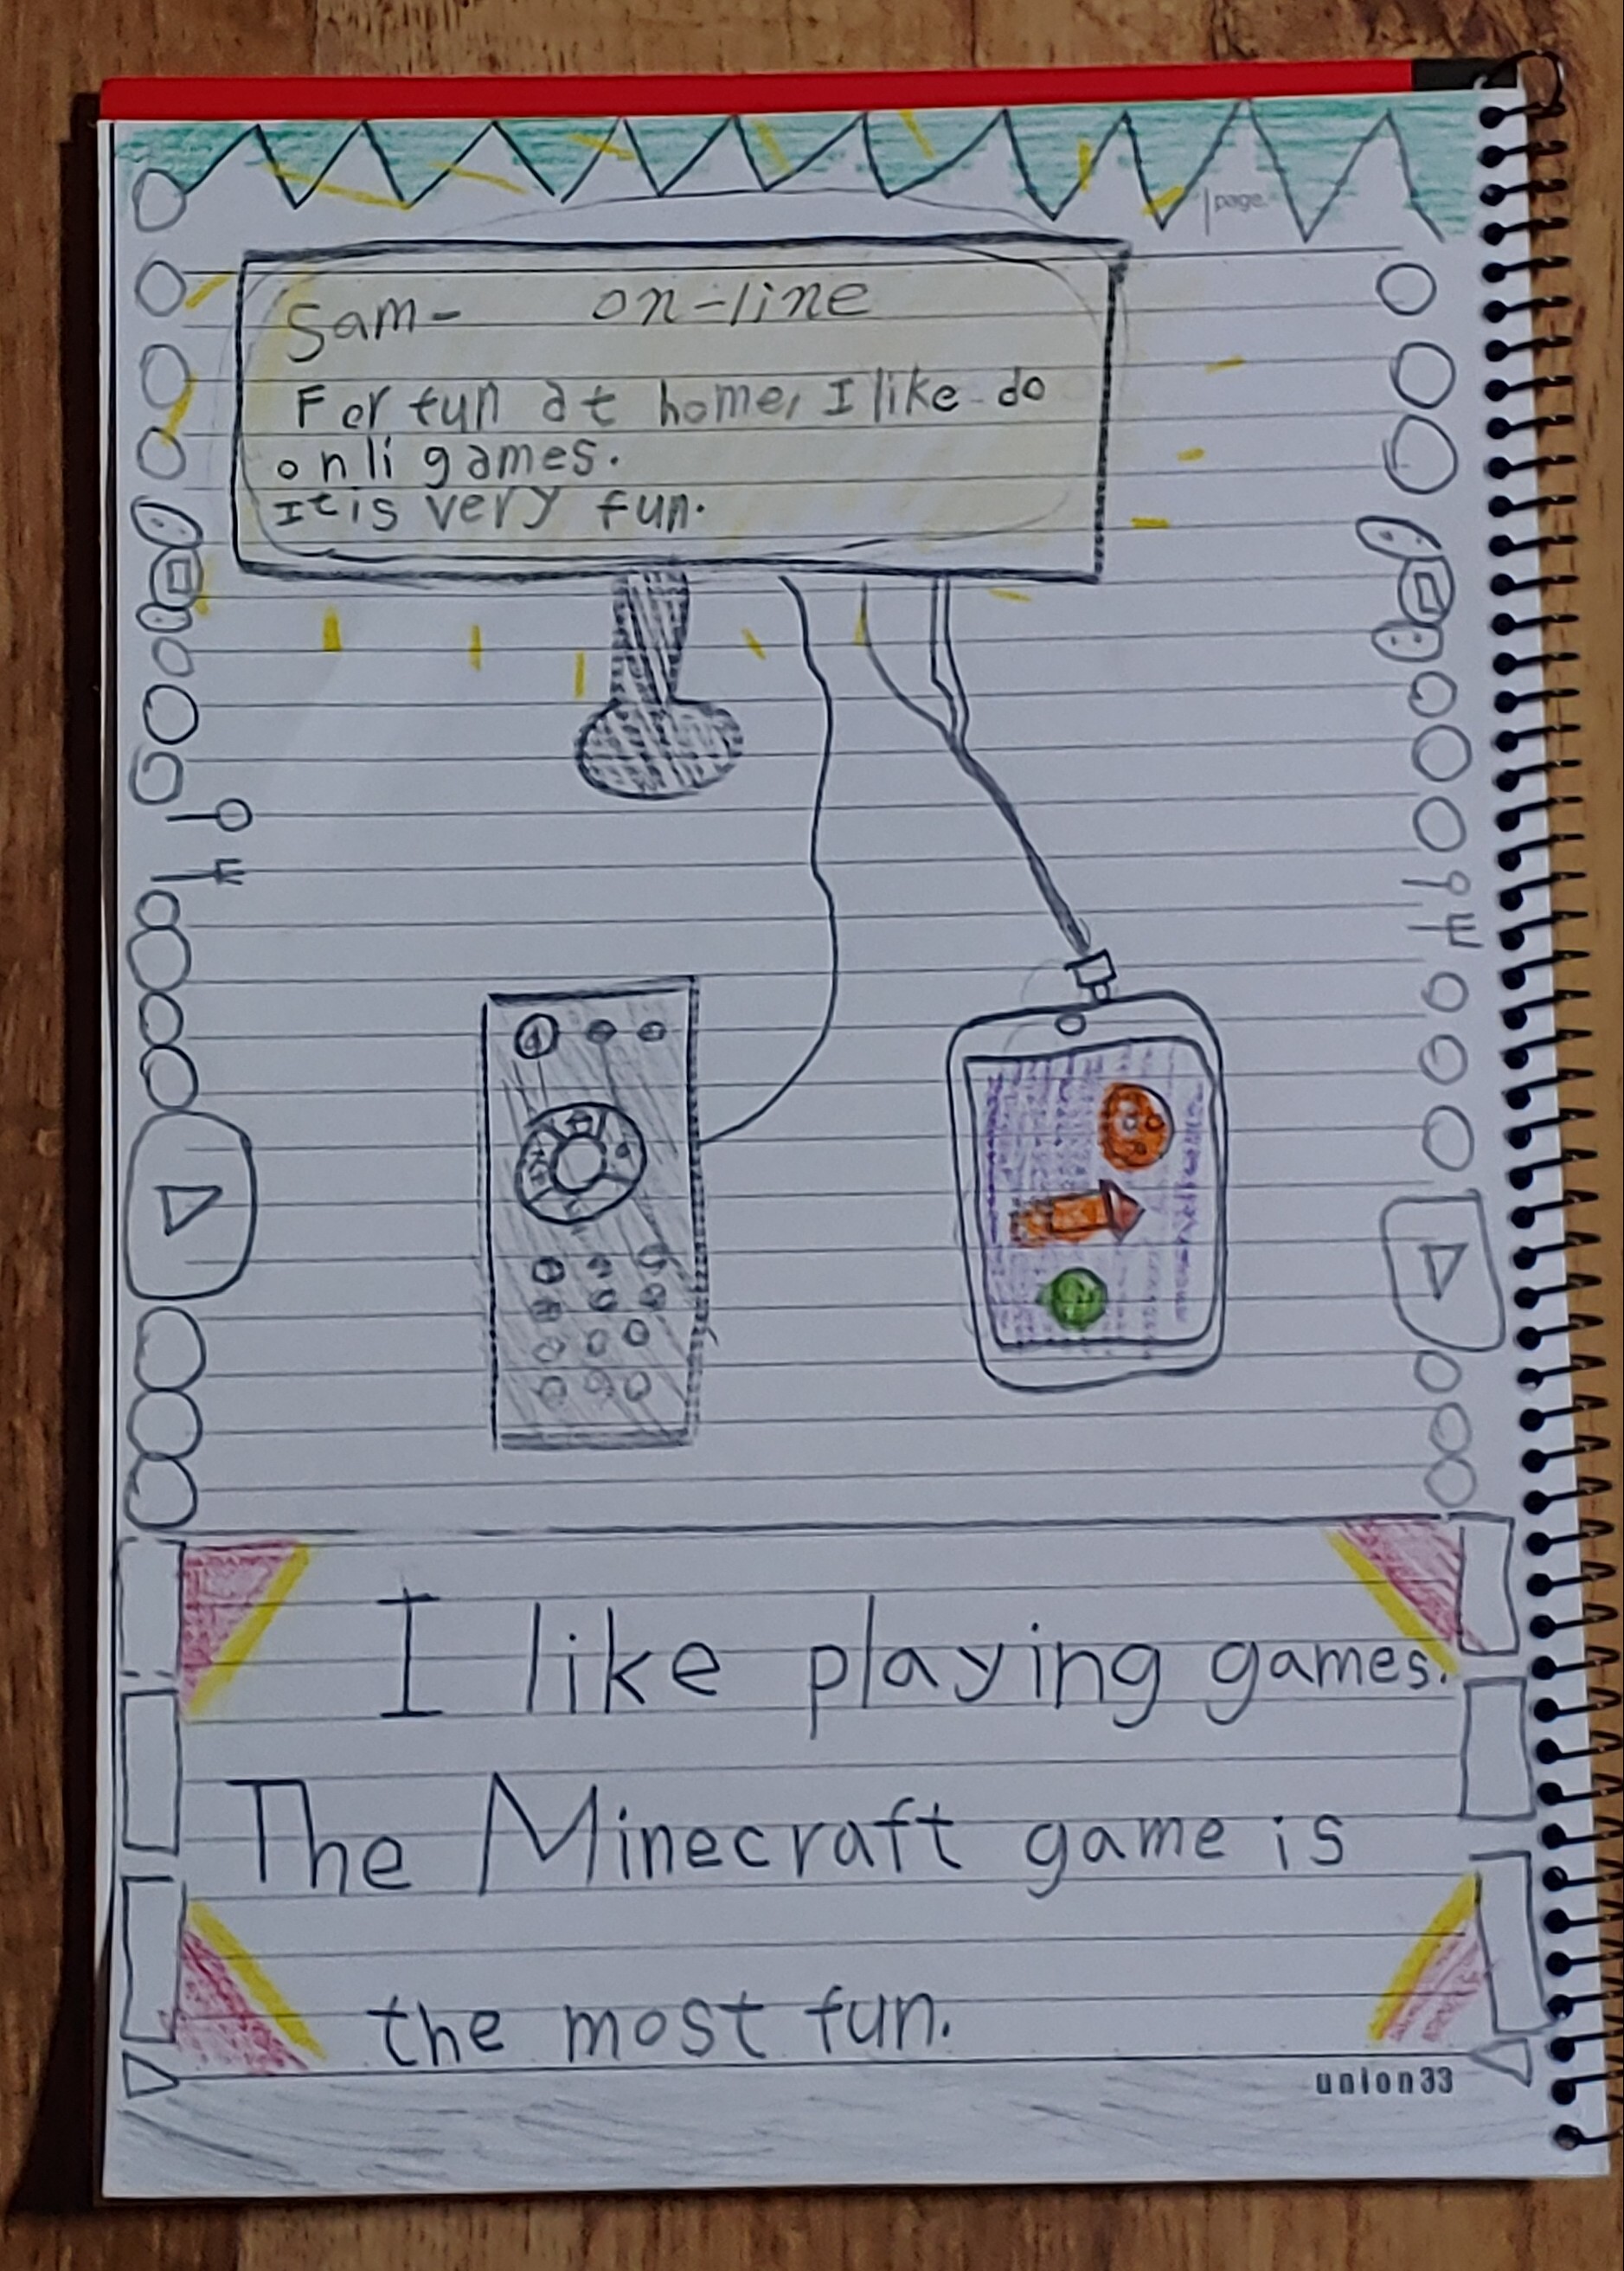 page
Sam- on-line
For fun at home, I like do
onli games.
It is very fun.
I like playing games.
The Minecraft game is
the most fun.
union33